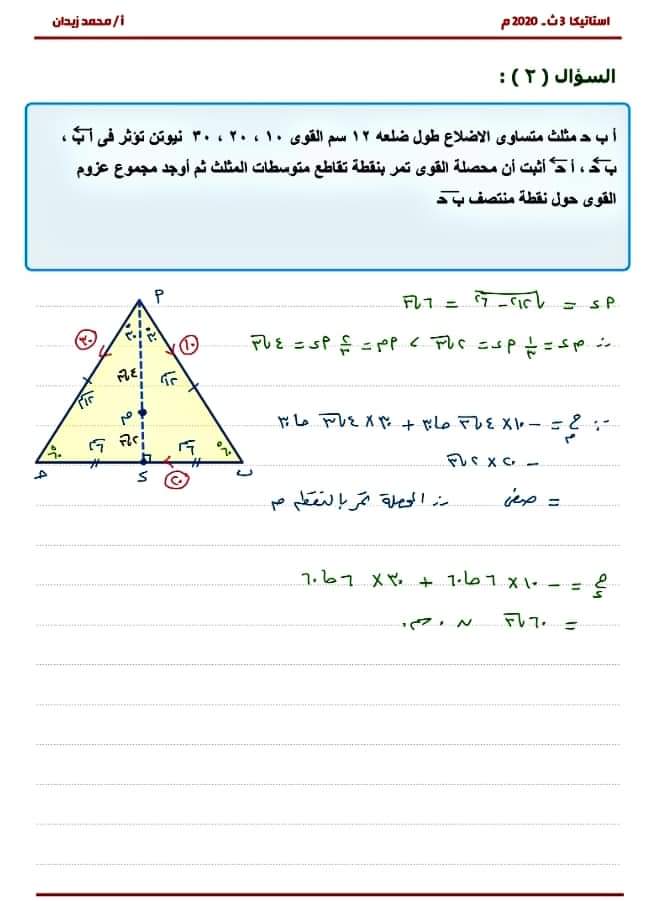 استاتيكا 3 ث - 2020 م
أ / محمد زيدان
السؤال ( ٢ ) :
أ ب حـ مثلث متساوى الاضلاع طول ضلعه ١٢ سم القوى ١٠ ، ٢٠ ، ٣٠ نيوتن تؤثر فى أب ،
ب حـ ، أ حـ أثبت أن محصلة القوى تمر بنقطة تقاطع متوسطات المثلث ثم أوجد مجموع عزوم
القوى حول نقطة منتصف ب حـ
أ
٣٠
١٠
٣٠ ٣٠
٤√٣
١٢
١٢
م
٢√٣
٦
٦
٦٠
٦٠
حـ
د
ب
٢٠
أد = √(١٢)٢ - (٦)٢ = ٦√٣
∴ م د = ١/٣ أد = ٢√٣ ، أم = ٢/٣ أد = ٤√٣
∵ جـ م = - ١٠ × ٤√٣ حا ٣٠ + ٣٠ × ٤√٣ حا ٣٠
- ٢٠ × ٢√٣
= صفر ∴ المحصلة تمر بالنقطة م
جـ د = - ١٠ × ٦ حا ٦٠ + ٣٠ × ٦ حا ٦٠
= ٦٠√٣ ن . سم .